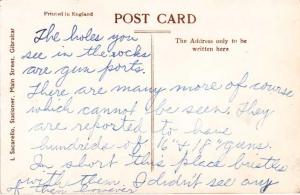 Printed in England
POST CARD
The Address only to be
written here
L. Saccarello, Stationer, Main Street, Gibraltar
The holes you
see in the rocks
are gun ports.
There are many more of course
which cannot be seen. They
are reported to have
hundreds of 16" & 18" guns.
In short this place bristles
with them. I didn't see any
of them however